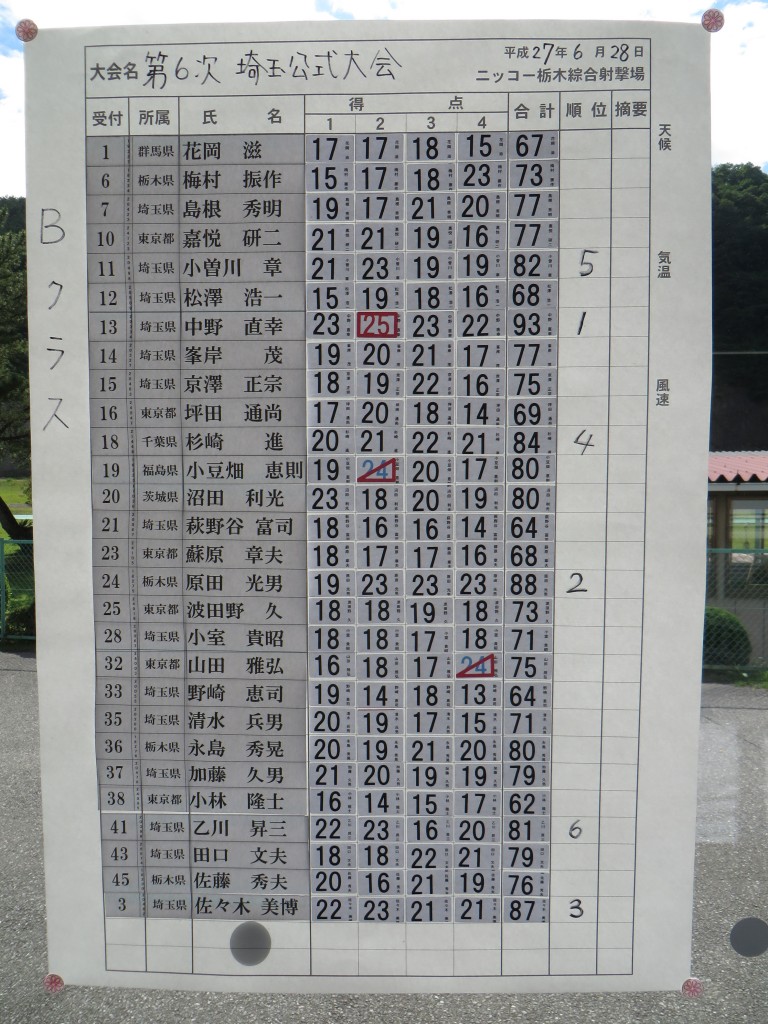 平成27年6月28日
大会名 第6次 埼玉公式大会 ニッコー栃木綜合射撃場
受付 所属 氏名 得点 合計 順位 摘要
1 2 3 4
天候
気温
風速
Bクラス
1 群馬県 花岡 滋 17 17 18 15 67
6 栃木県 梅村 振作 15 17 18 23 73
7 埼玉県 島根 秀明 19 17 21 20 77
10 東京都 嘉悦 研二 21 21 19 16 77
11 埼玉県 小曽川 章 21 23 19 19 82 5
12 埼玉県 松澤 浩一 15 19 18 16 68
13 埼玉県 中野 直幸 23 25 23 22 93 1
14 埼玉県 峯岸 茂 19 20 21 17 77
15 埼玉県 京澤 正宗 18 19 22 16 75
16 東京都 坪田 通尚 17 20 18 14 69
18 千葉県 杉崎 進 20 21 22 21 84 4
19 福島県 小豆畑 恵則 19 24 20 17 80
20 茨城県 沼田 利光 23 18 20 19 80
21 埼玉県 萩野谷 富司 18 16 16 14 64
23 東京都 蘇原 章夫 18 17 17 16 68
24 栃木県 原田 光男 19 23 23 23 88 2
25 東京都 波田野 久 18 18 19 18 73
28 埼玉県 小室 貴昭 18 18 17 18 71
32 東京都 山田 雅弘 16 18 17 24 75
33 埼玉県 野崎 恵司 19 14 18 13 64
35 埼玉県 清水 兵男 20 19 17 15 71
36 栃木県 永島 秀晃 20 19 21 20 80
37 埼玉県 加藤 久男 21 20 19 19 79
38 東京都 小林 隆士 16 14 15 17 62
41 埼玉県 乙川 昇三 22 23 16 20 81 6
43 埼玉県 田口 文夫 18 18 22 21 79
45 栃木県 佐藤 秀夫 20 16 21 19 76
3 埼玉県 佐々木 美博 22 23 21 21 87 3